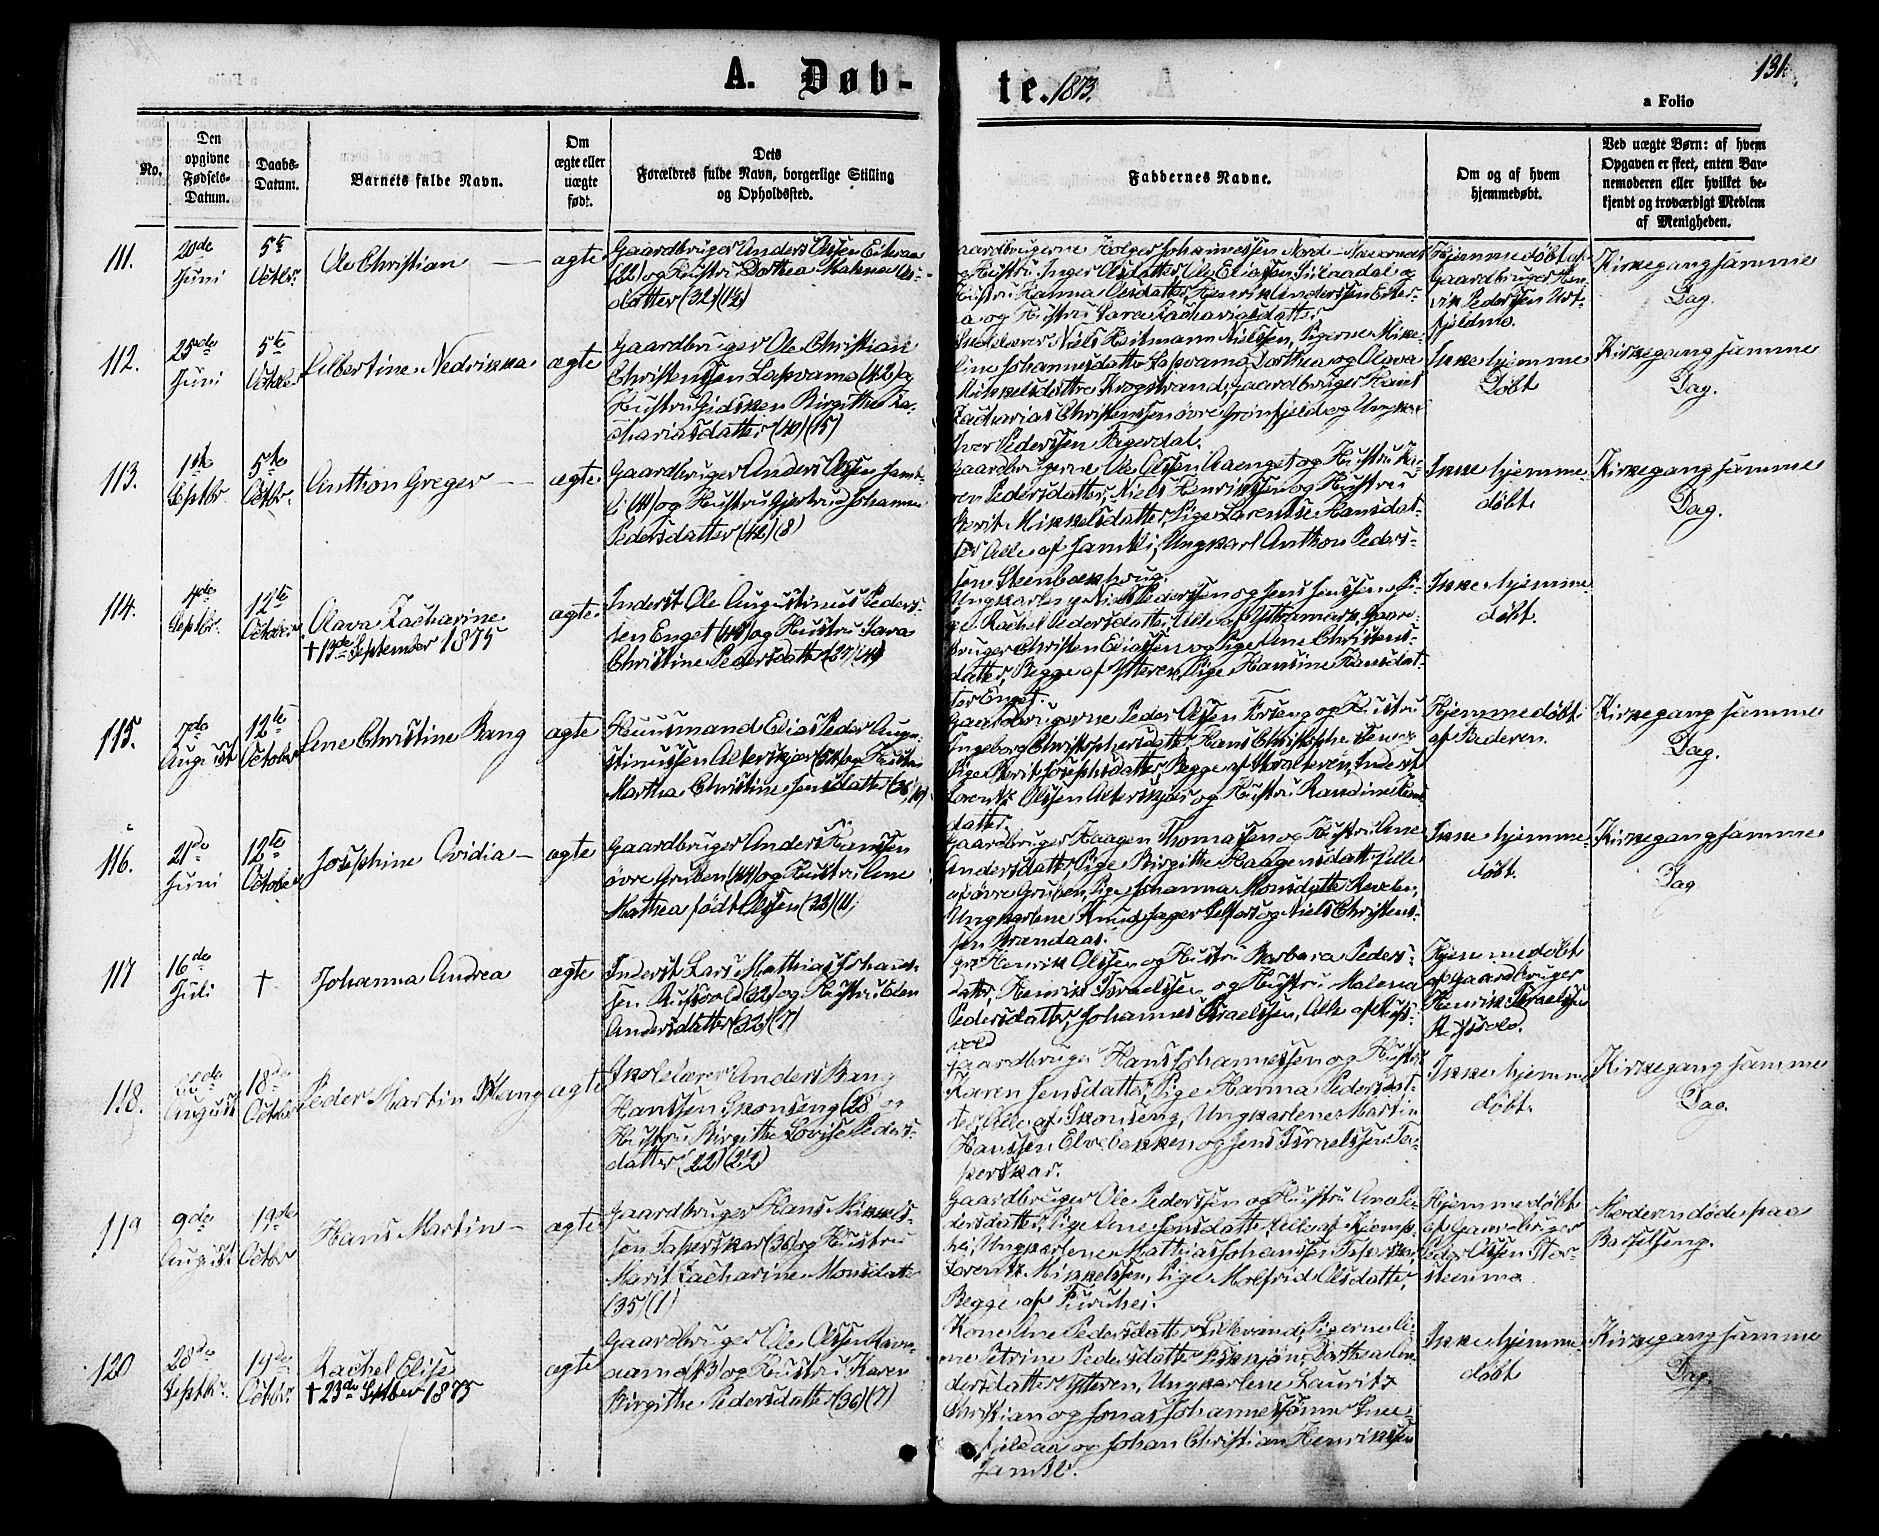 A. Døb-
te. 1873.
131.
a Folio
No.
Den opgivne Fødsels-Datum.
Daabs-Datum.
Barnets fulde Navn.
Om ægte eller uægte født.
Dets Forældres fulde Navn, borgerlige Stilling og Opholdssted.
Faddernes Navne.
Om og af hvem hjemmedøbt.
Ved uægte Børn: af hvem Opgaven er skeet, enten Barnemoderen eller hvilket bekjendt og troværdigt Medlem af Menigheden.
111.
20de Juni
5te Octbr.
Ole Christian
ægte
Gaardbruger Anders Olssen
(22) og Hustru Dorthea Malena Ols-
datter (32) (12)
Gaardbrugerne Holger Johannessen Nord-
og Hustru Inger Olsdatter, Ole Eliassen og
Hustru Hanna Olsdatter, Henrik Anderssen
og Hustru Sara Zachariasdatter
Hjemmedøbt af
Gaardbruger Hen-
rik Pederssen Urt-
fjeldmo.
Kirkegang samme
Dag.
112.
25de Juni
5te Octbr
Albertine Nedrikka
ægte
Gaardbruger Ole Christian
Christenssen (42) og
Hustru Gidsken Birgitha Za-
chariasdatter (40) (15)
Niels Heitmann Nielssen, Pigerne Mikke-
line Johannesdatter, Dorthea og Olava
Mikkelsdatter Krogstrand, Gaardbruger Hans
Zacharias Christenssen øvre Grønfjeld og Ungkarl
Iver Pederssen Fagerdal.
Ikke hjemme
Døbt
Kirkegang samme
Dag.
113.
1ste Septbr.
5te Octbr.
Anthon Greger
ægte
Gaardbruger Anders Olssen Jamt-
li (44) og Hustru Gjertrud Johanna
Pedersdatter (42) (8)
Gaardbrugerne Ole Olssen Aaenget og Hustru Ka-
ren Pedersdatter, Niels Henrikssen og Hustru
Berit Mikkelsdatter, Pige Lorentse Hansdat-
ter Alle af Jamtli, Ungkarl Anthon Peders-
sen Steenbækhaug.
Ikke hjemme-
døbt.
Kirkegang samme
Dag.
114.
4de Septbr.
12te October
Olava Zacharine
† 13de September 1875
ægte
Inderst Ole Augustinus Peders-
sen Enget (40) og Hustru Sara
Christine Pedersdatter (27) (4)
Ungkarlene Niels Pederssen og Jens Jenssen, Pi-
ge Rachel Pedersdatter, Alle af Ytteren, Gaard-
bruger Christen Eliassen og Pige Ane Christens-
datter, Begge af Ytteren, Pige Hansine Hansdat-
ter Enget.
Ikke hjemme
døbt.
115.
7de August
12te October
Ane Christine Bang
ægte
Huusmand Elias Peder Augu-
stinussen Alterskjær (54) og Hustru
Martha Christine Jensdatter (36) (10)
Gaardbrugerne Peder Olssen og Hustru
Ingeborg Christophersdatter, Hans Christophersen og
Pige Berit Josephsdatter, Begge af, Inderst
Lorentz Olssen Alterskjær og Hustru Randine
datter.
Hjemmedøbt
af Faderen.
Kirkegang samme
Dag.
116.
21de Juni
12te October
Josephine Ovidia
ægte
Gaardbruger Anders Hanssen
øvre Gruben (44) og Hustru Ane
Mathea født Olssen (38) (11)
Gaardbruger Haagen Thomassen og Hustru Ane
Andersdatter, Pige Birgithe Haagensdatter Alle
af øvre Gruben, Pige Johanna Monsdatter Revelen,
Ungkarlene Knud Jager Selfors og Niels Christens-
sen Brændaas.
Ikke hjemme-
døbt.
Kirkegang samme
Dag
117
16de Juli
†
Johanna Andrea
ægte
Inderst Lars Mathias Johans-
sen (32) og Hustru Elen
Andersdatter (32) (7)
Henrik Olssen og Hustru Barbara Peders-
datter, Henrik Israelssen og Hustru Malena
Pedersdatter, Johannes Israelssen, Alle af
Hjemmedøbt
af Gaardbruger
Henrik Israelssen
118.
August
18de October
Peder Martin Bang
ægte
Skolelærer Anders Bang
Hanssen Skonseng (28) og
Hustru Birgithe Lovise Peders-
datter (22) (2½)
Gaardbruger Hans Johannessen og Hustru
Karen Jensdatter, Pige Hanna Pedersdat-
ter, Alle af Skonseng, Ungkarlene Martin
Hanssen Elvebakken og Jens Israelssen Ta-
perskar.
Ikke hjemme
døbt.
Kirkegang samme
Dag.
119
9de August
19de Octbr
Hans Martin
ægte
Gaardbruger Hans Mikkels-
sen Taperskar (38) og Hustru
Marit Zacharine Monsdatter
(35) (1)
Gaardbruger Ole Pederssen og Hustru Ane Pe-
dersdatter, Pige Ane Jensdatter, Alle af
hei, Ungkarlene Mathias Johanssen Taperskar,
Lorentz Mikkelssen, Pige Molfrid Olsdatter,
Begge af Furuhei.
Hjemmedøbt
af Gaardbruger
Peder Olssen Stor-
steenmo.
Moderen døde paa
Barselseng.
120
28de Septbr.
19de Octbr.
Rachel Elise
† 23de Septber 1875
ægte
Gaardbruger Ole Olssen Ravn-
aamo (43) og Hustru Karen
Birgithe Pedersdatter (36) (7)
Kone Ane Pedersdatter, Pigerne
Petrine Pedersdatter, Dorthea An-
dersdatter Ytteren, Ungkarlene Lauritz
Christian og Jonas Johannessønner
og Johan Christian Henrikssen
Jamtli.
Ikke hjemme-
døbt
Kirkegang samme
Dag.